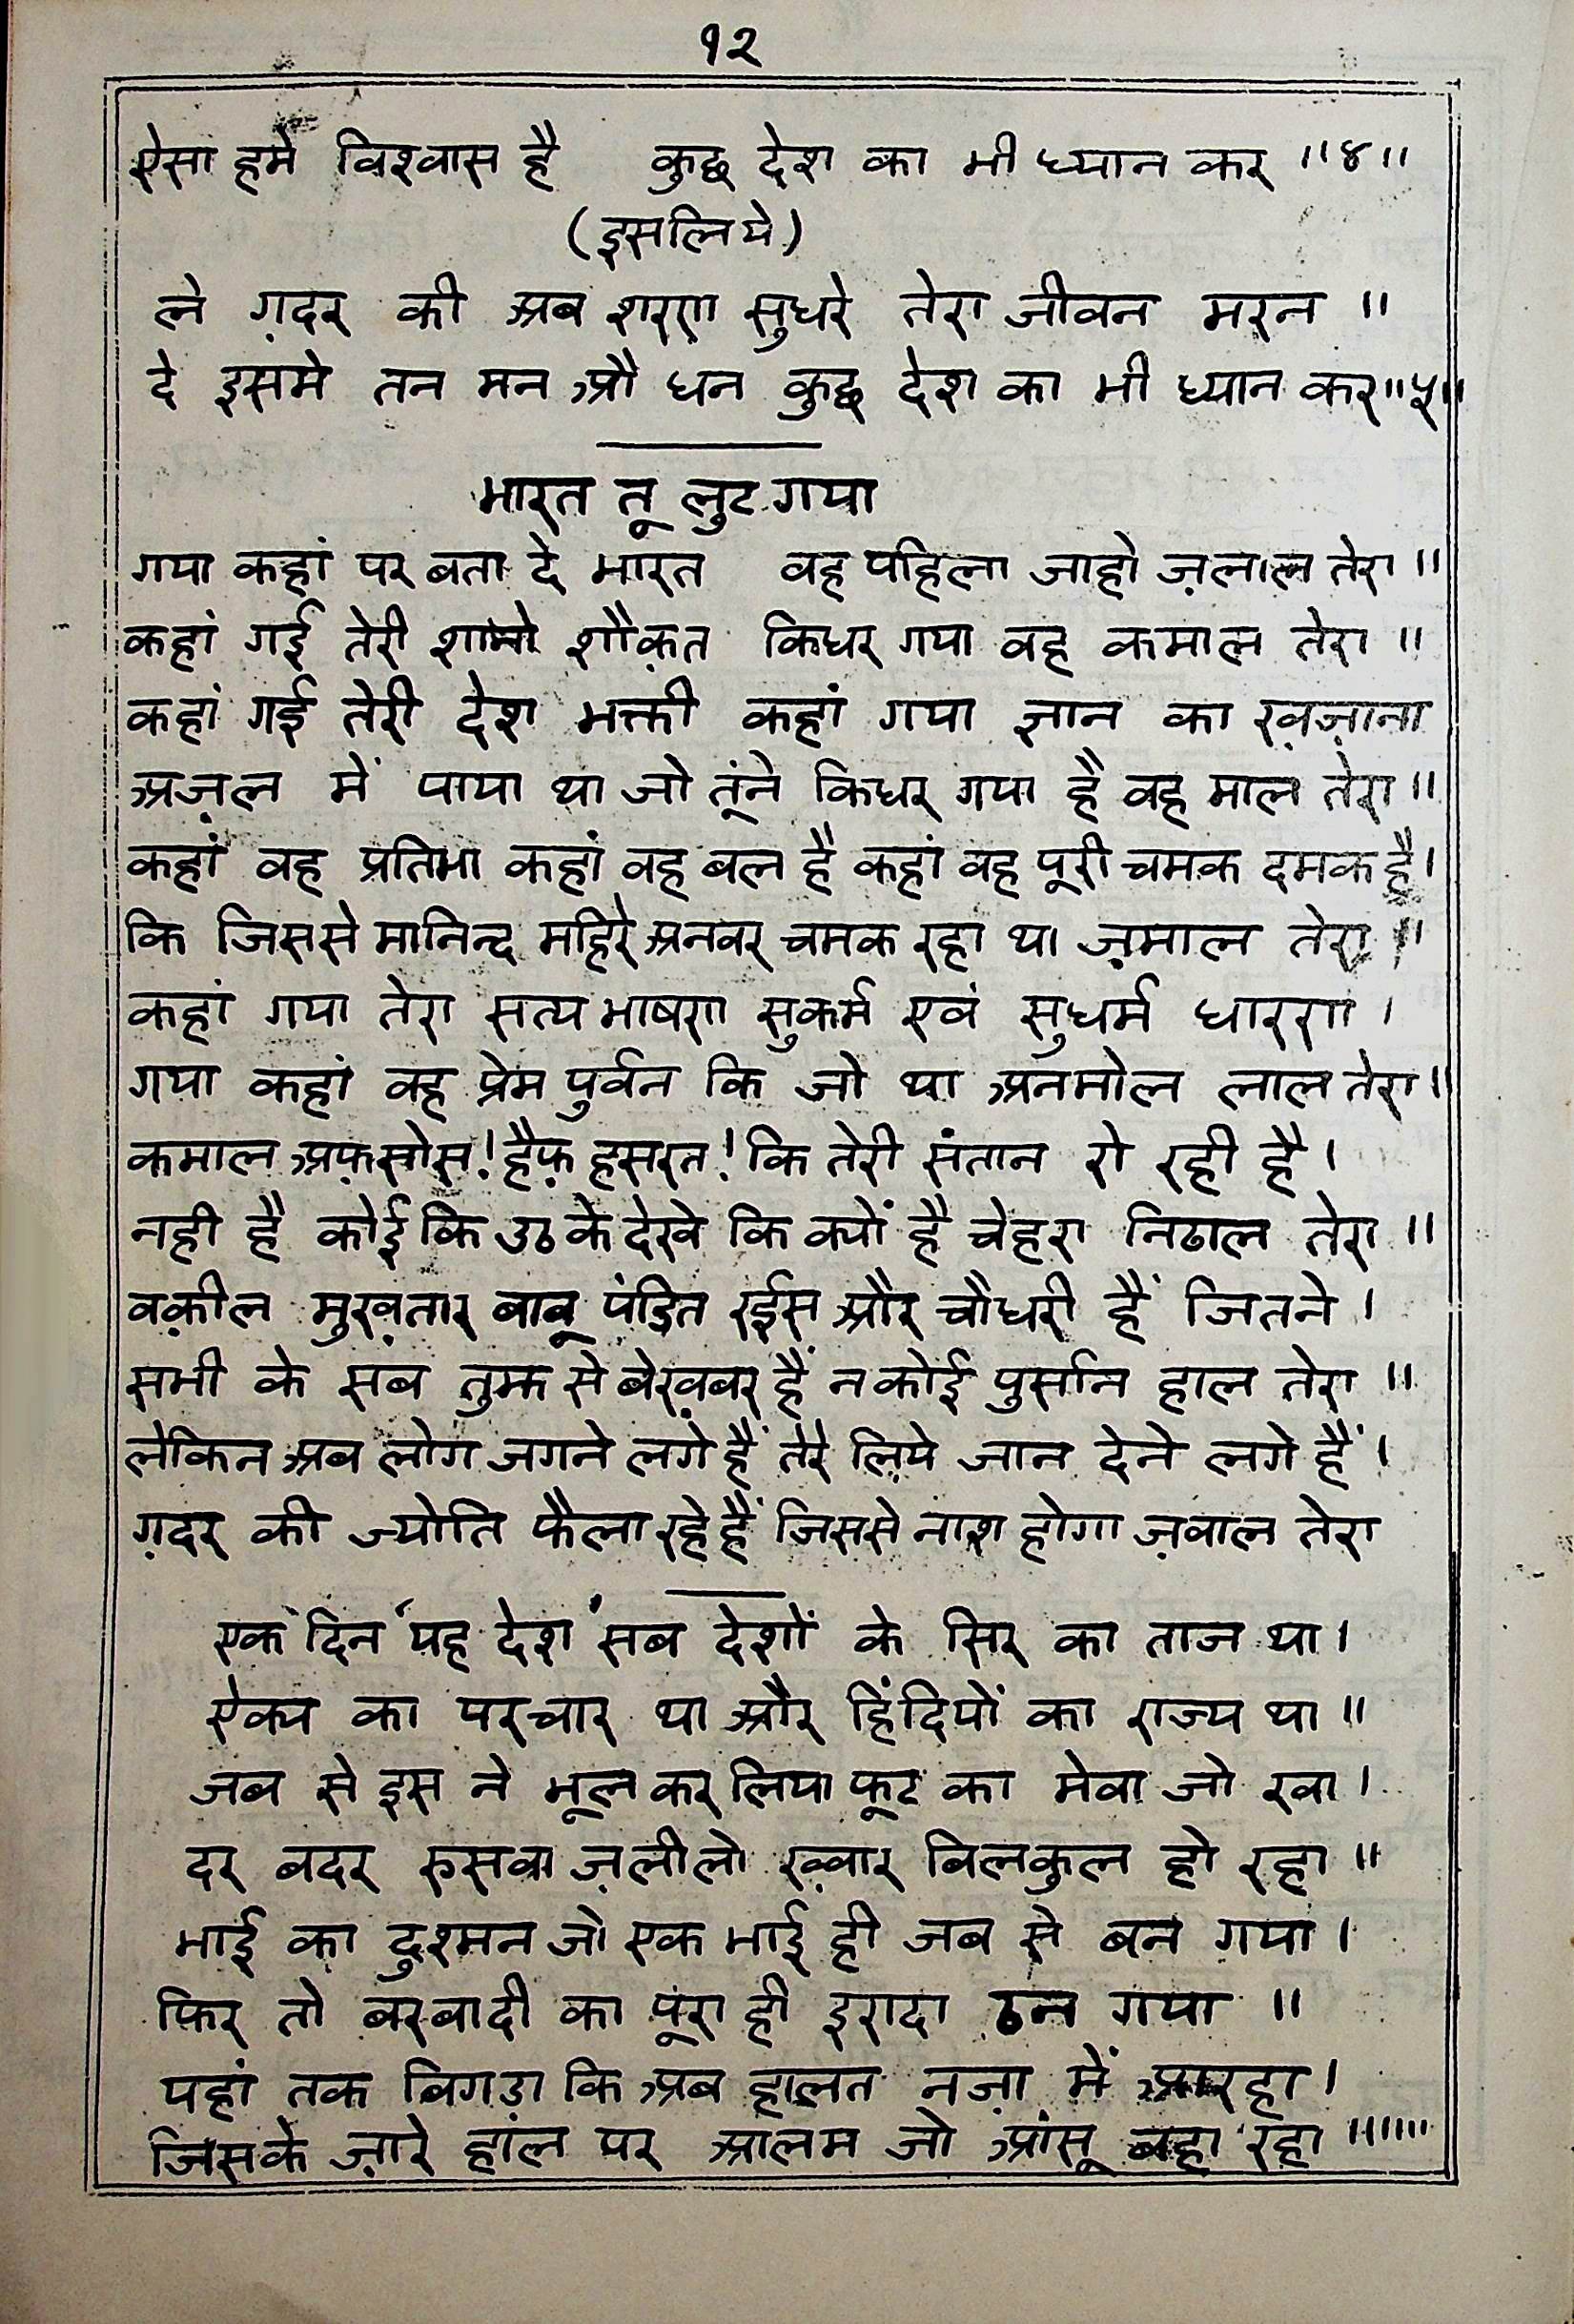 १२
ऐसा हमे विश्वास है कुछ देश का भी ध्यान कर ॥४॥
(इसलिये)
ले ग़दर की अब शरण सुधरे तेरा जीवन मरन ॥
दे इसमे तन मन औ धन कुछ देश का भी ध्यान कर॥५॥
भारत तू लुट गया
गया कहां पर बता दे भारत वह पहिला जाहो ज़लाल तेरा ॥
कहां गई तेरी शानो शौक़त किधर गया वह कमाल तेरा ॥
कहां गई तेरी देश भक्ती कहां गया ज्ञान का ख़ज़ाना
अज़ल में पाया था जो तूंने किधर गया है वह माल तेरा ॥
कहां वह प्रतिभा कहां वह बल है कहां वह पूरी चमक दमक है।
कि जिससे मानिन्द महिरे अनवर चमक रहा था ज़माल तेरा ॥
कहां गया तेरा सत्य भाषण सुकर्म एवं सुधर्म धारण ।
गया कहां वह प्रेम पुर्वन कि जो था अनमोल लाल तेरा ॥
कमाल अफ़सोस! हैफ़ हसरत! कि तेरी संतान रो रही है ।
नही है कोई कि उठ के देखे कि क्यों है चेहरा निढाल तेरा ॥
वक़ील मुख़तार बाबू पंडित रईस और चौधरी हैं जितने ।
सभी के सब तुझ से बेख़बर हैं न कोई पुर्सान हाल तेरा ॥
लेकिन अब लोग जगने लगे हैं तेरे लिये जान देने लगे हैं ।
ग़दर की ज्योति फैला रहे हैं जिससे नाश होगा ज़वाल तेरा
एक दिन 'यह देश' सब देशों के सिर का ताज था ।
ऐक्य का परचार था और हिंदियों का राज्य था ॥
जब से इस ने भूल कर लिया फूट का मेवा जो खा ।
दर बदर रुसवा ज़लीलो ख़्वार बिलकुल हो रहा ॥
भाई का दुश्मन जो एक भाई ही जब से बन गया ।
फिर तो बरबादी का पूरा ही इरादा ठन गया ॥
यहां तक बिगड़ा कि अब हालत नज़ा में आरहा ।
जिसके ज़ारे हाल पर आलम जो आंसू बहा रहा ॥॥॥